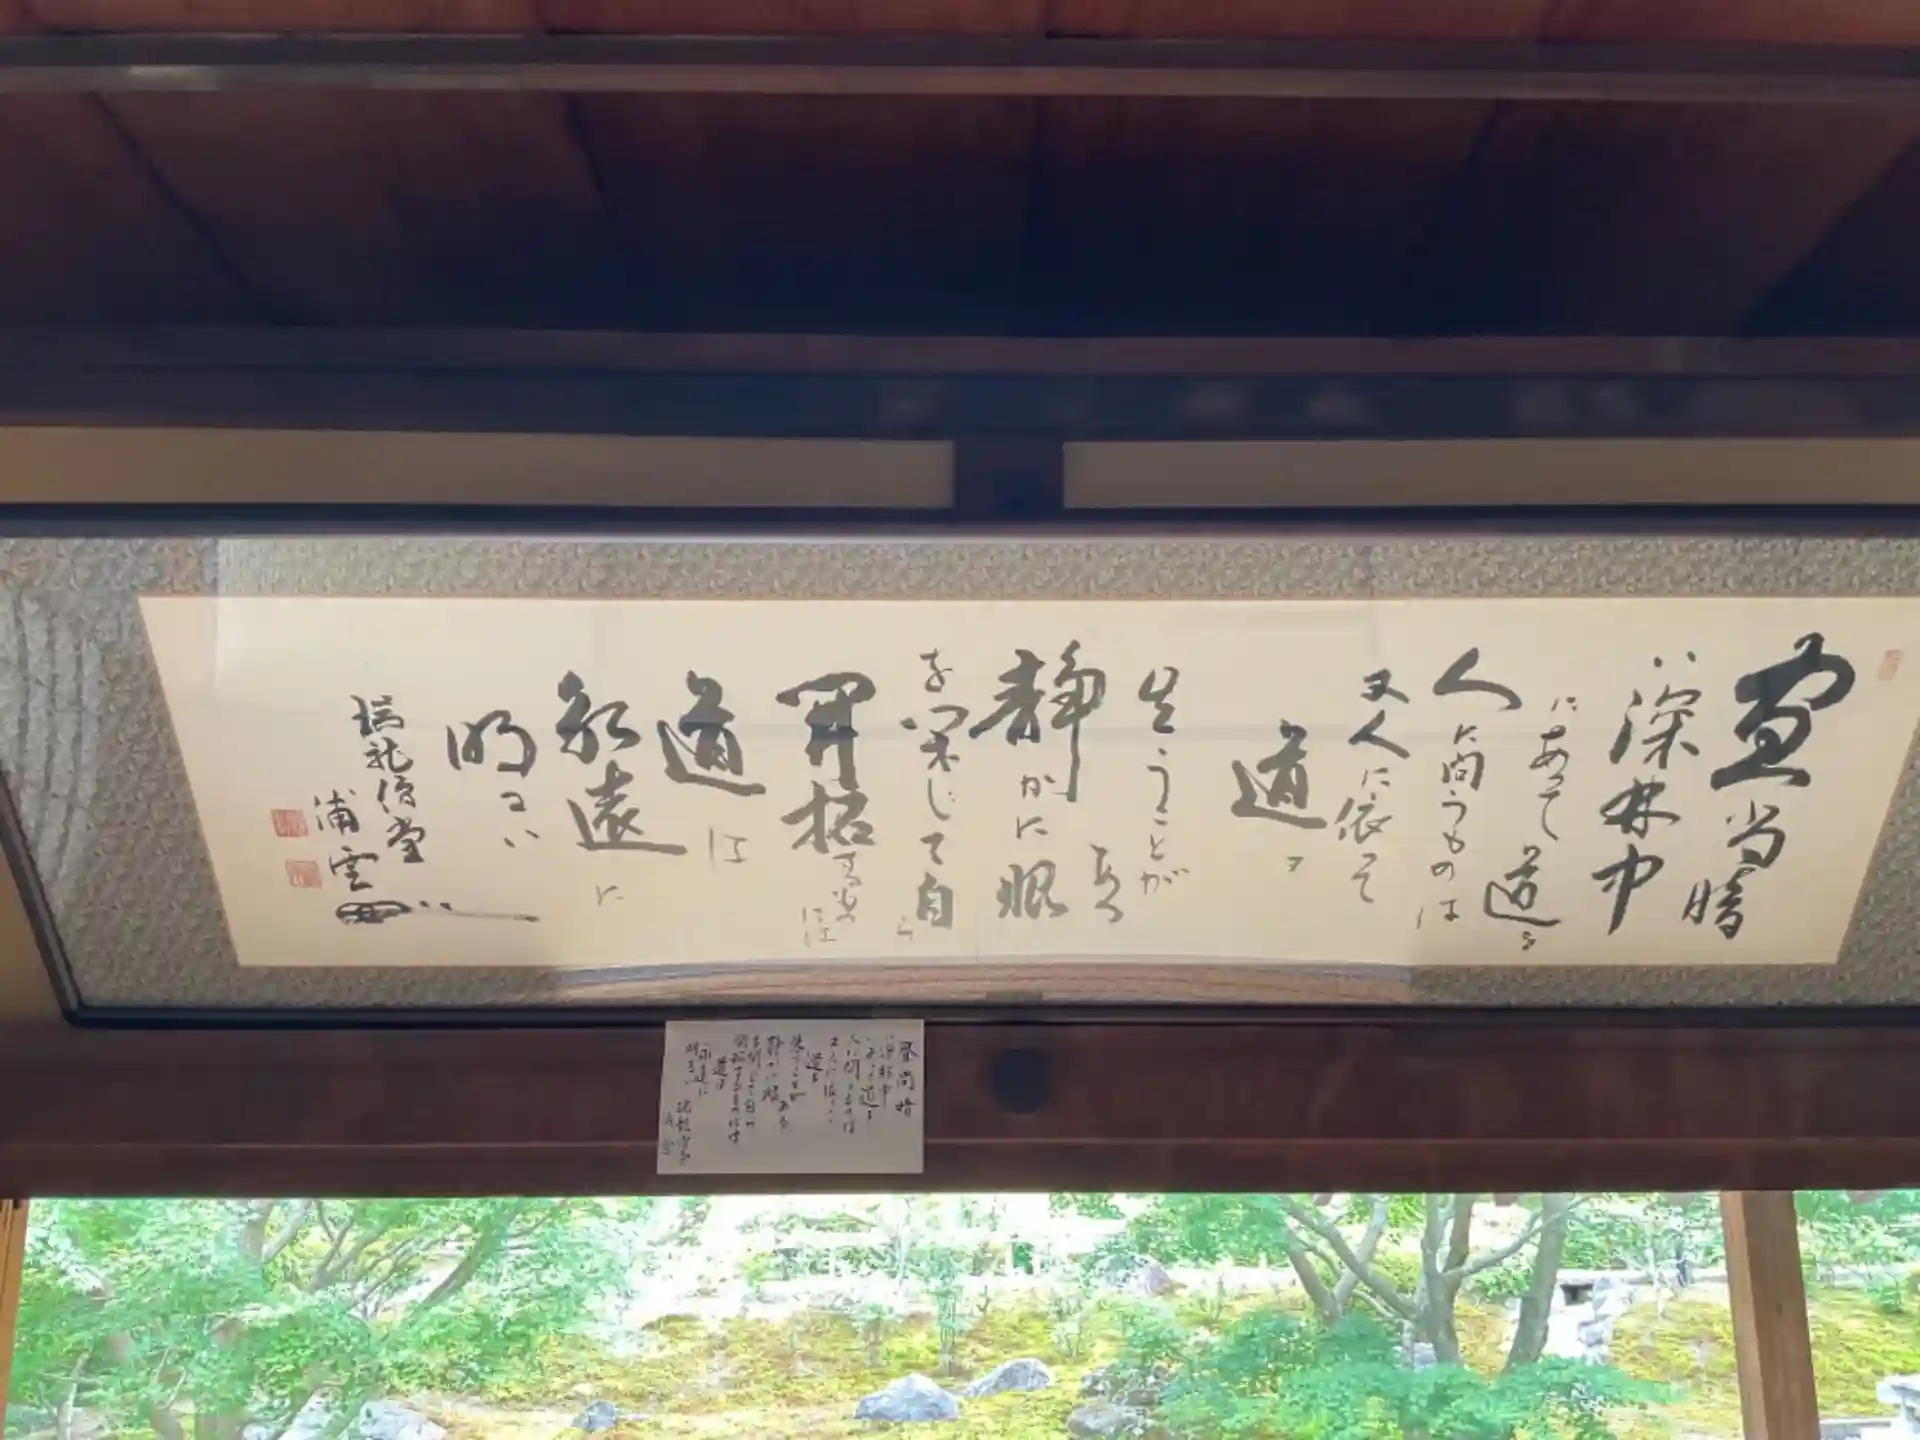 昼尚暗
い深林中
にあって道を
人に問うものは
又人に依って
道を
失うことが
ある
静かに眼
を閉じて自ら
開拓するものには
道は
永遠に
明るい
瑞龍僧堂
浦雲
昼尚暗
い深林中
にあって道を
人に問うものは
又人に依って
道を
失うことが
ある
静かに眼
を閉じて自ら
開拓するものには
道は
永遠に
明るい